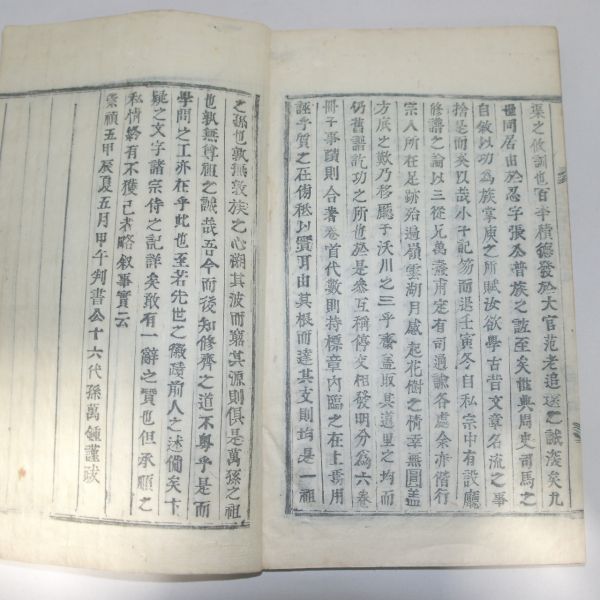 渠之攸訓也百年積德發於大官范老追遠之誠淺矣九
世同居由於忍字張公普族之誼至矣惟典周史司馬之
自做以功爲族掌庾之所賦汝欲學古昔文章名流之事
捨是而矣以哉小子記笏而退壬寅冬自私宗中有設廳
修譜之論以三從兄萬燾甫定有司通諭各處余亦偕行
宗人所在足跡殆遍嶺雲湖月感起花樹之情幸無圓蓋
方底之歎乃移廳于沃川之三乎齋盖取其道里之均而
仍舊譜訖功之所也於是參互稱停交相發明分爲六卷
冊子事蹟則合著卷首代數則特標章內臨之在上焉用
誣乎質之在傍秪以實耳由其根而達其支則均是一祖
之孫也孰無敦族之心溯其波而窮其源則俱是萬孫之祖
也孰無尊祖之誠哉吾今而後知修齊之道不專乎是而
學問之工亦在乎此也至若先世之徽蹟前人之述備矣卞
疑之文字諸宗侍之記詳矣敢有一辭之贅也但承順之
私情終有不獲已者略叙事實云
崇禎五甲辰夏五月甲午判書公十六代孫萬鍾謹跋